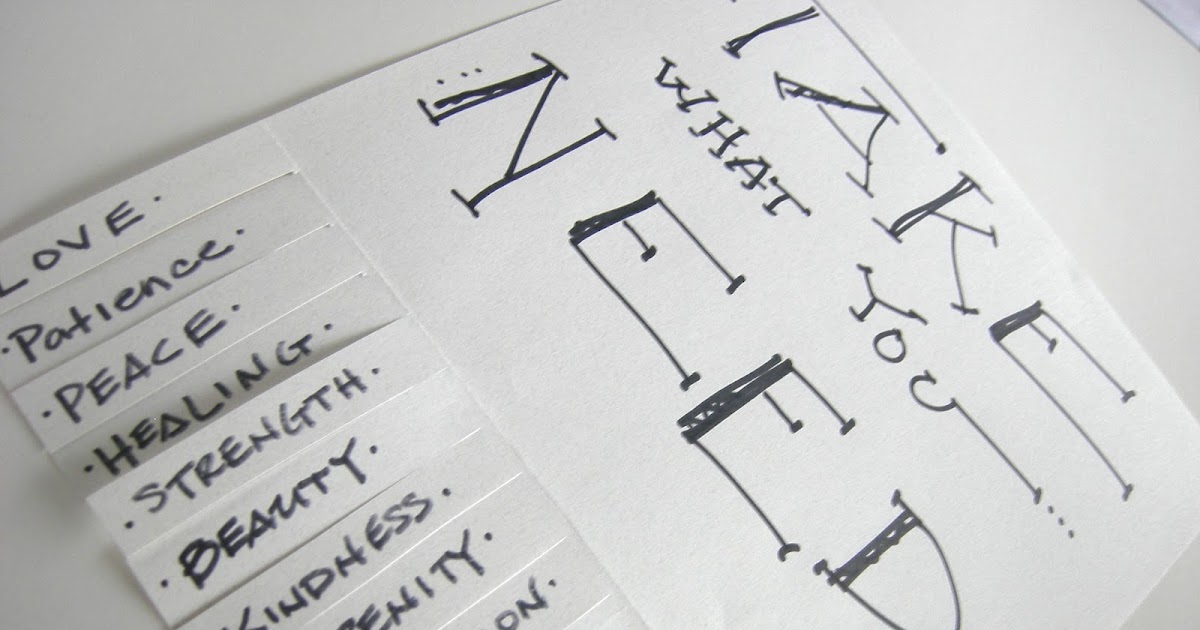 TAKE
WHAT YOU...
...NEED
LOVE.
·Patience.
·PEACE.
·HEALING.
·STRENGTH.
·BEAUTY.
KINDNESS.